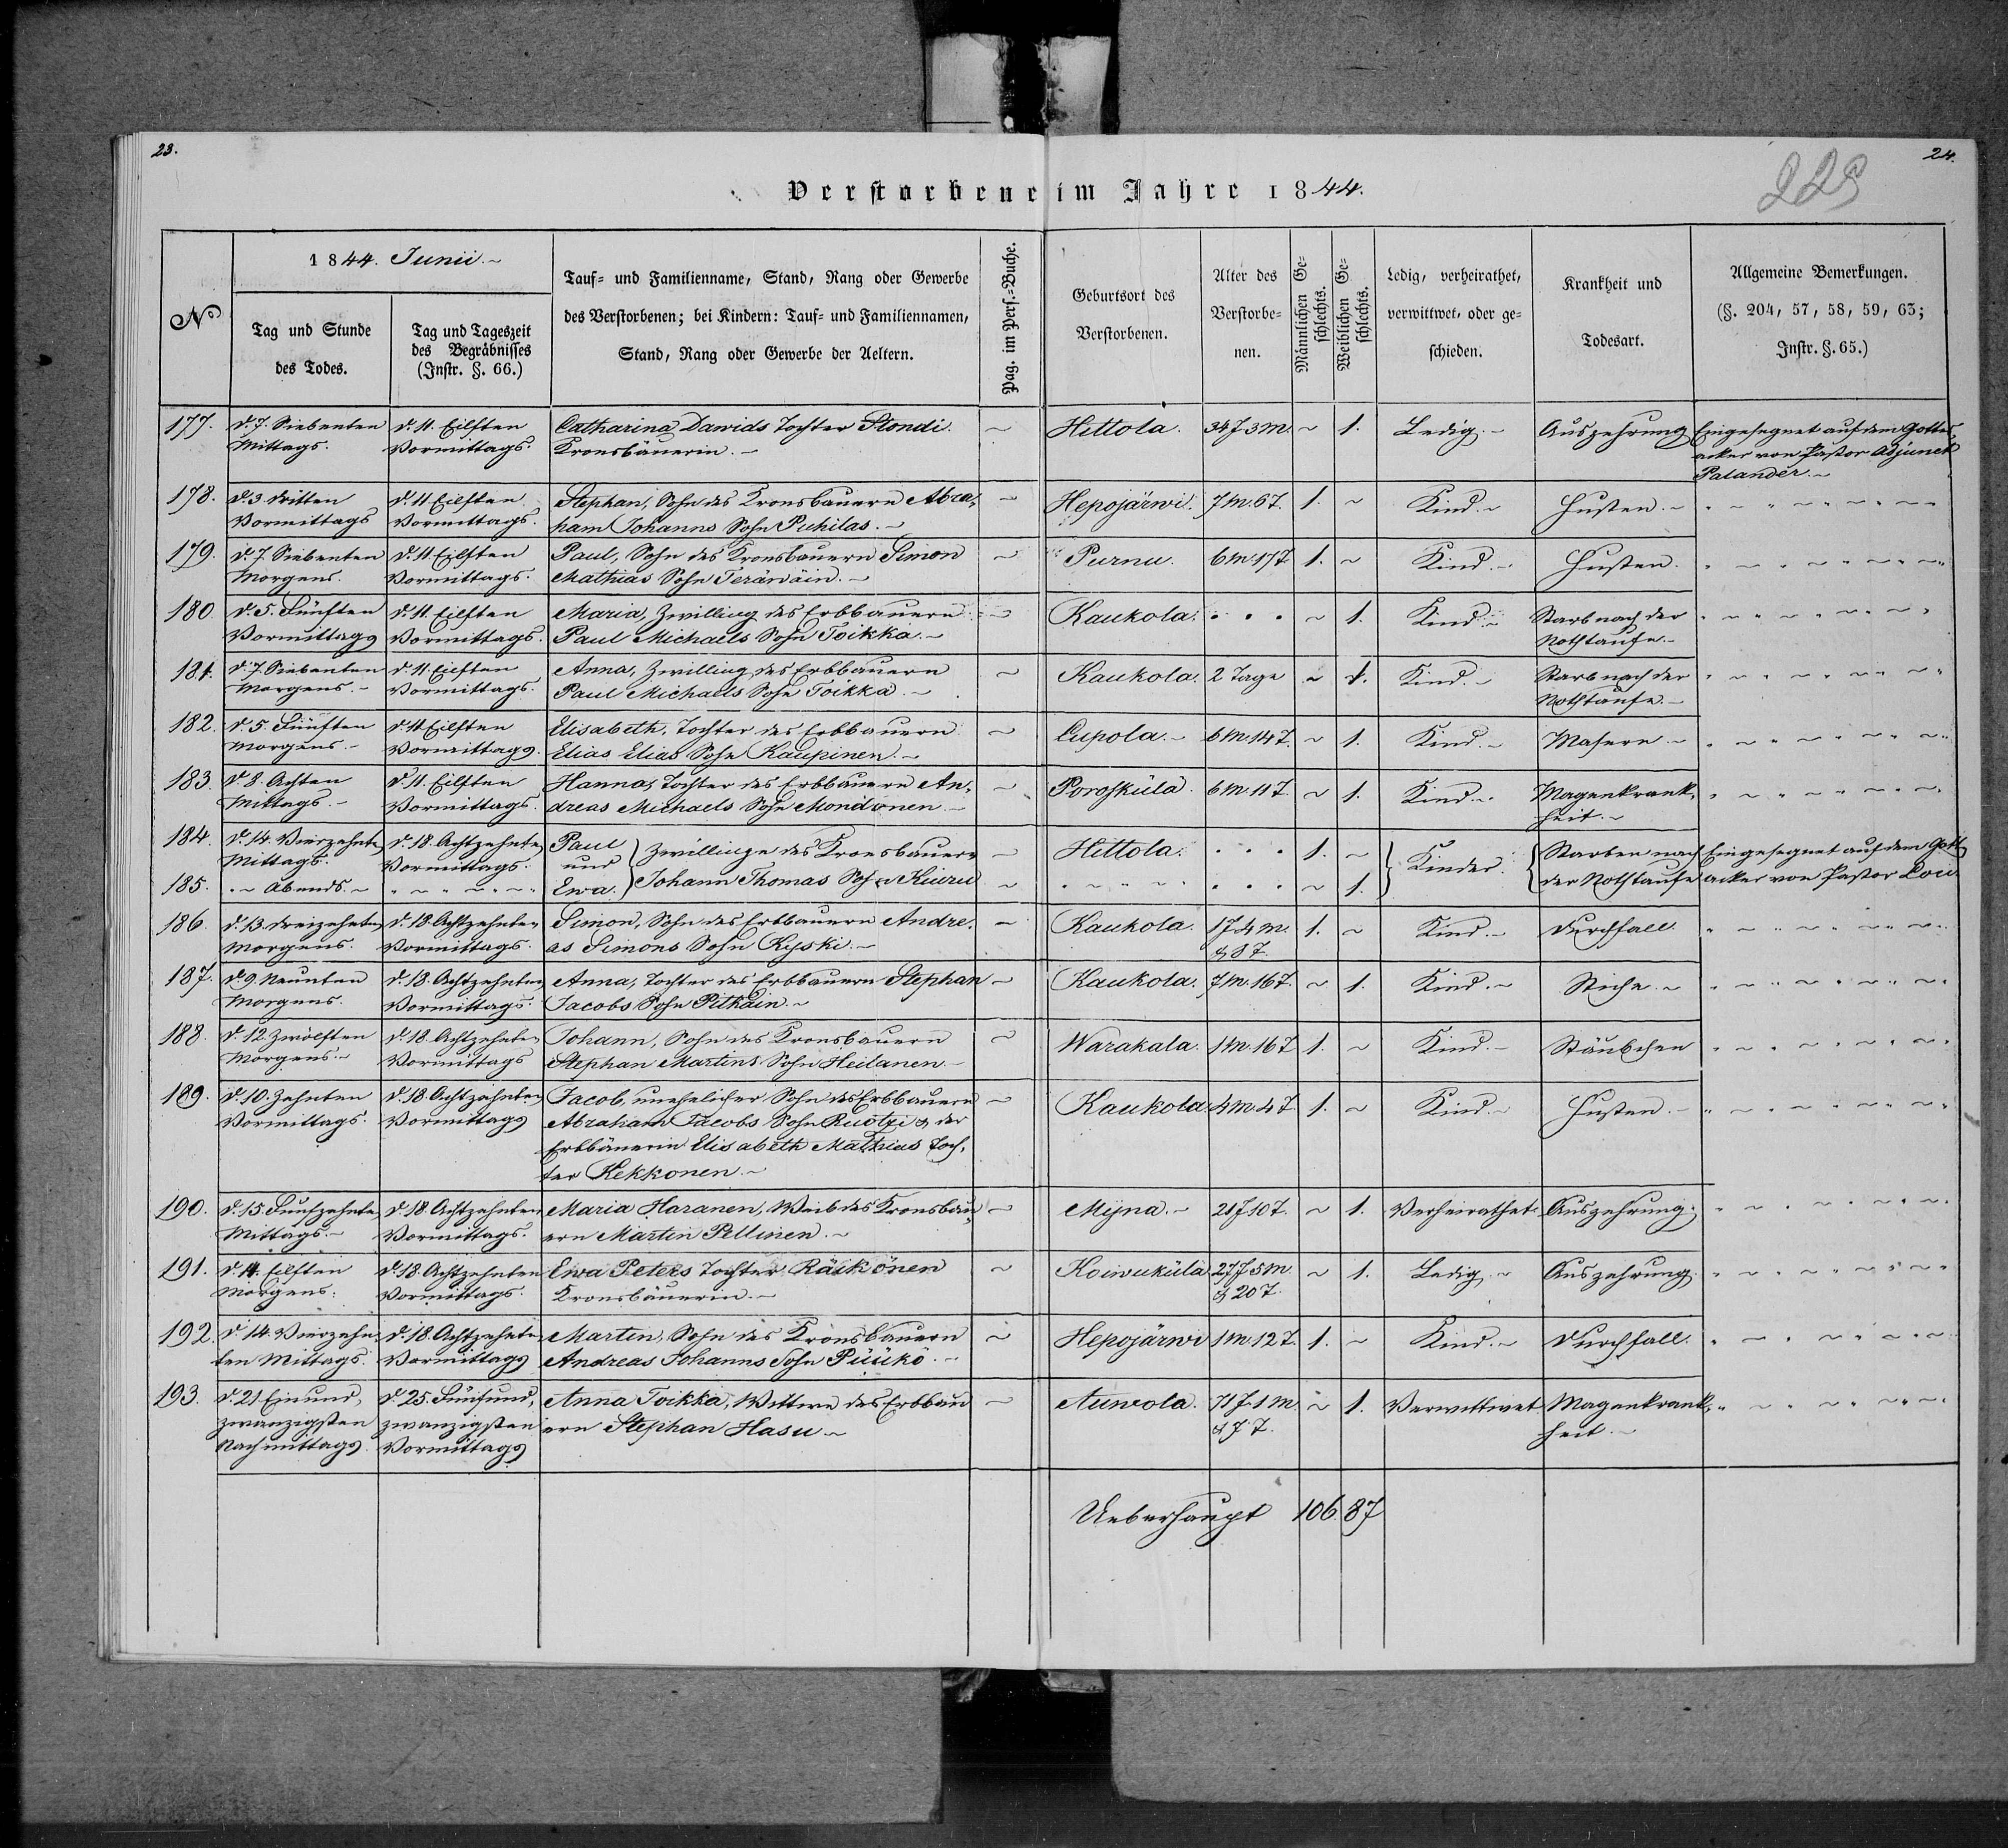 23.
24.
229
Verstorbene im Jahre 1844.
№
1844. Junii.
Tag und Stunde des Todes.
Tag und Tageszeit des Begräbnisses (Instr. §. 66.)
Tauf- und Familienname, Stand, Rang oder Gewerbe
des Verstorbenen; bei Kindern: Tauf- und Familiennamen,
Stand, Rang oder Gewerbe der Aeltern.
Pag. im Pers.-Buche.
Geburtsort des Verstorbenen.
Alter des Verstorbe-nen.
Männlichen Ge-schlechts.
Weiblichen Ge-schlechts.
Ledig, verheirathet, verwittwet, oder ge-schieden.
Krankheit und Todesart.
Allgemeine Bemerkungen.
(§. 204, 57, 58, 59, 63;
Instr. §. 65.)
177. d. 7. Siebenten d. 11. Eilften Catharina Davids Tochter Stondi. ~ Hittola. 34 J 3 M. ~ 1. Ledig. Auszehrung Eingesegnet auf dem Gottes-
Mittags. Vormittags. Kronsbäuerin. acker von Pastor Adjunct
Palander.
178. d. 3. Dritten d. 11. Eilften Stephan, Sohn des Kronsbauern Abra- ~ Hepojärwi. 7 M. 6 T. 1. ~ Kind. Husten.
Vormittags Vormittags. ham Johanns Sohn Puhilas.
179. d. 7. Siebenten d. 11. Eilften Paul, Sohn des Kronsbauern Simon ~ Purnu. 6 M 17 T 1. ~ Kind. Husten.
Morgens. Vormittags. Mathias Sohn Teräwäin.
180. d. 5. Fünften d. 11. Eilften Maria, Zwilling des Erbbauern ~ Kaukola. . . . ~ 1. Kind. Starb nach der
Vormittags Vormittags. Paul Michaels Sohn Toikka. Nothtaufe.
181. d. 7. Siebenten d. 11. Eilften Anna, Zwilling des Erbbauern ~ Kaukola. 2 Tage ~ 1. Kind. Starb nach der
Morgens. Vormittags. Paul Michaels Sohn Toikka. Nothtaufe.
182. d. 5. Fünften d. 11. Eilften Elisabeth, Tochter des Erbbauern ~ Cupola. 6 M. 14 T. ~ 1. Kind. Masern
Morgens. Vormittags. Elias Elias Sohn Kaupinen.
183. d. 8. Achten d. 11. Eilften Hanna, Tochter des Erbbauern An- ~ Poroskülä. 6 M. 11 T. ~ 1. Kind. Magenkrank-
Mittags. Vormittags. dreas Michaels Sohn Mondonen. heit.
184. d. 14. Vierzehnten d. 18. Achtzehnten Paul Zwillinge des Kronsbauern ~ Hittola. . . . 1. ~ Kinder. Starben nach Eingesegnet auf dem Gott
Mittags. Vormittags. und
185. Abends. Ewa. Johann Thomas Sohn Kiuru ~ . . . ~ 1. der Nothtaufe acker von Pastor
186. d. 13. Dreizehnten d. 18. Achtzehnten Simon, Sohn des Erbbauern Andre- ~ Kaukola. 1 J. 4 M. 1. ~ Kind. Durchfall.
Morgens. Vormittags. as Simons Sohn Kyski. & 8 T.
187. d. 9. Neunten d. 18. Achtzehnten Anna, Tochter des Erbbauern Stephan ~ Kaukola. 7 M. 16 T. ~ 1. Kind. Stiche.
Morgens. Vormittags. Jacobs Sohn Pitkäin.
188. d. 12. Zwölften d. 18. Achtzehnten Johann, Sohn des Kronsbauern ~ Warakala. 1 M. 16 T 1. ~ Kind. Stäubchen
Morgens. Vormittags Stephan Martins Sohn Heilanen.
189. d. 10. Zehnten d. 18. Achtzehnten Jacob, unehelicher Sohn des Erbbauern ~ Kaukola. 4 M. 4 T. 1. ~ Kind. Husten.
Vormittags. Vormittags Abraham Jacobs Sohn Ruotzi & der
Erbbäuerin Elisabeth Mathias Toch-
ter Kekkonen.
190. d. 15. Funfzehnten d. 18. Achtzehnten Maria Haranen, Weib des Kronsbau- ~ Mijna. 21 J 10 T. ~ 1. Verheirathet. Auszehrung.
Mittags. Vormittags. ern Martin Pellinen.
191. d. 11. Eilften d. 18. Achtzehnten Ewa Peters Tochter Räikönen ~ Koiwukülä 27 J 5 M. ~ 1. Ledig. Auszehrung.
Morgens. Vormittags. Kronsbäuerin. & 20 T.
192. d. 14. Vierzehn- d. 18. Achtzehnten Martin, Sohn des Kronsbauern ~ Hepojärwi 1 M. 12 T. 1. ~ Kind. Durchfall.
ten Mittags. Vormittags Andreas Johanns Sohn Püükö.
193. d. 21. Einund- d. 25. Fünfund- Anna Toikka, Wittwe des Erbbau- ~ Auneola. 71 J. 1 M. ~ 1. Verwittwet Magenkrank-
zwanzigsten zwanzigsten ern Stephan Hasu & 7 T. heit.
Nachmittags. Vormittags
Ueberhaupt 106. 87